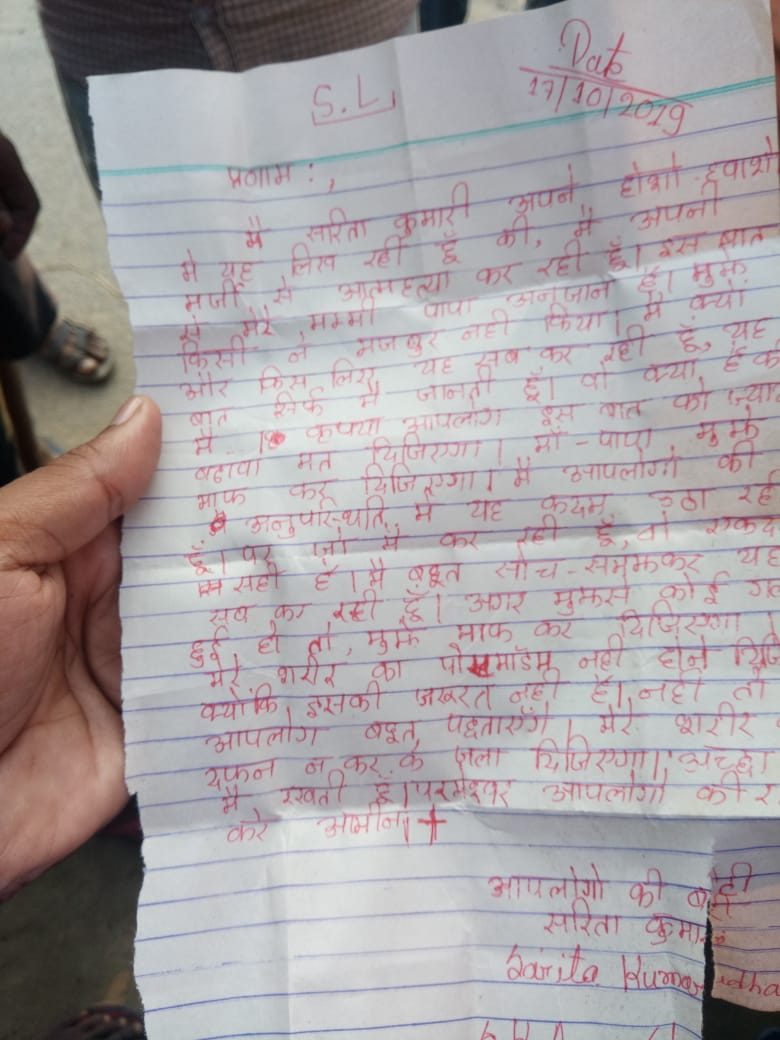 S.L
Date
17/10/2019
प्रणाम : ,
मै सरिता कुमारी अपने होशो-हवाशो
मे यह लिख रही हूँ की, मै अपनी
मर्जी से आत्महत्या कर रही हूँ। इस बात
से मेरे मम्मी पापा अनजान है। मुझे
किसी ने मजबुर नही किया। मै क्यों
और किस लिए यह सब कर रही हूँ, यह
बात सिर्फ मै जानती हूँ। वो क्या है की
मै कृपया आपलोग इस बात को
बढ़ावा मत दिजिएगा। माँ-पापा मुझे
माफ कर दिजिएगा। मै आपलोगो की
अनुपस्थति में यह कदम उठा रही
हूँ। पर जो मै कर रही हूँ, वो
सही है। मै बहूत सोच-समझकर यह
सब कर रही हूँ। अगर मुझसे कोई
हुई हो तो, मुझे माफ कर दिजिएगा।
मेरे शरीर का पोसमाॅडम नही होने
क्योंकि इसकी जरूरत नही है। नही तो
आपलोग बहूत पछताएँगे। मेरे शरीर
दफन न कर के जला दिजिएगा। अच्छा
मै रखती हूँ। परमेश्वर आपलोगो की
करे आमीन। +
आपलोगो की बेटी
सरिता कुमारी
Sarita Kumari